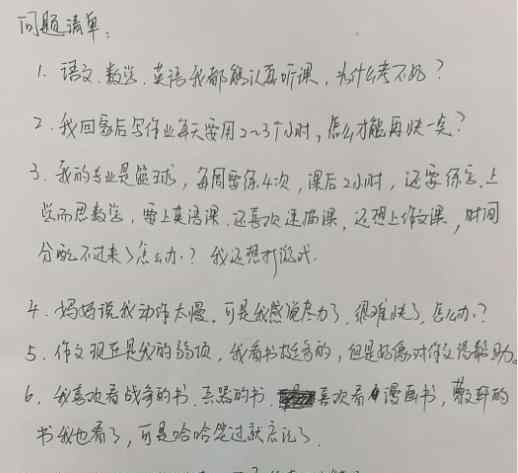 问题清单:
1. 语文、数学、英语我都能认真听课,为什么考不好?
2. 我回家后写作业每天要用2~3个小时,怎么才能再快一点?
3. 我的专业是篮球,每周要练4次,课后2小时,还要练字、上
学而思数学,要上英语课,还喜欢速描课,还想上作文课,时间
分配不过来了怎么办?我还想打游戏.
4. 妈妈说我动作太慢,可是我感觉尽力了,很难快了,怎么办?
5. 作文现在是我的弱项,我看书挺多的,但是好像对作文没帮助。
6. 我喜欢看战争的书、兵器的书,喜欢看漫画书,蒙文轩的
书我也看了,可是哈哈笑过就忘记了.